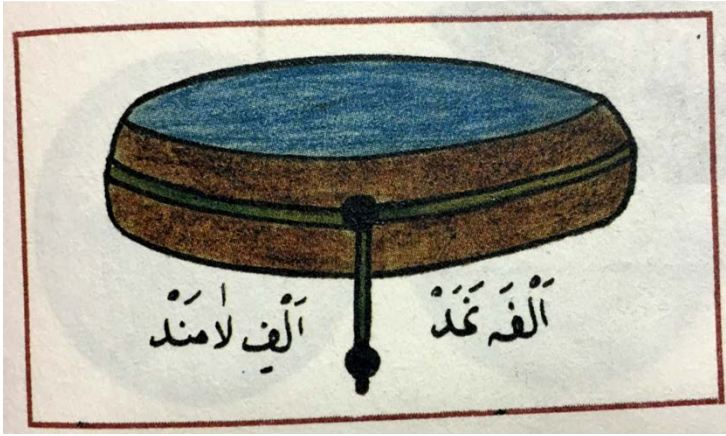 اَلْفَه نَمَدْ
اَلْفِ لاٰمَنَدْ